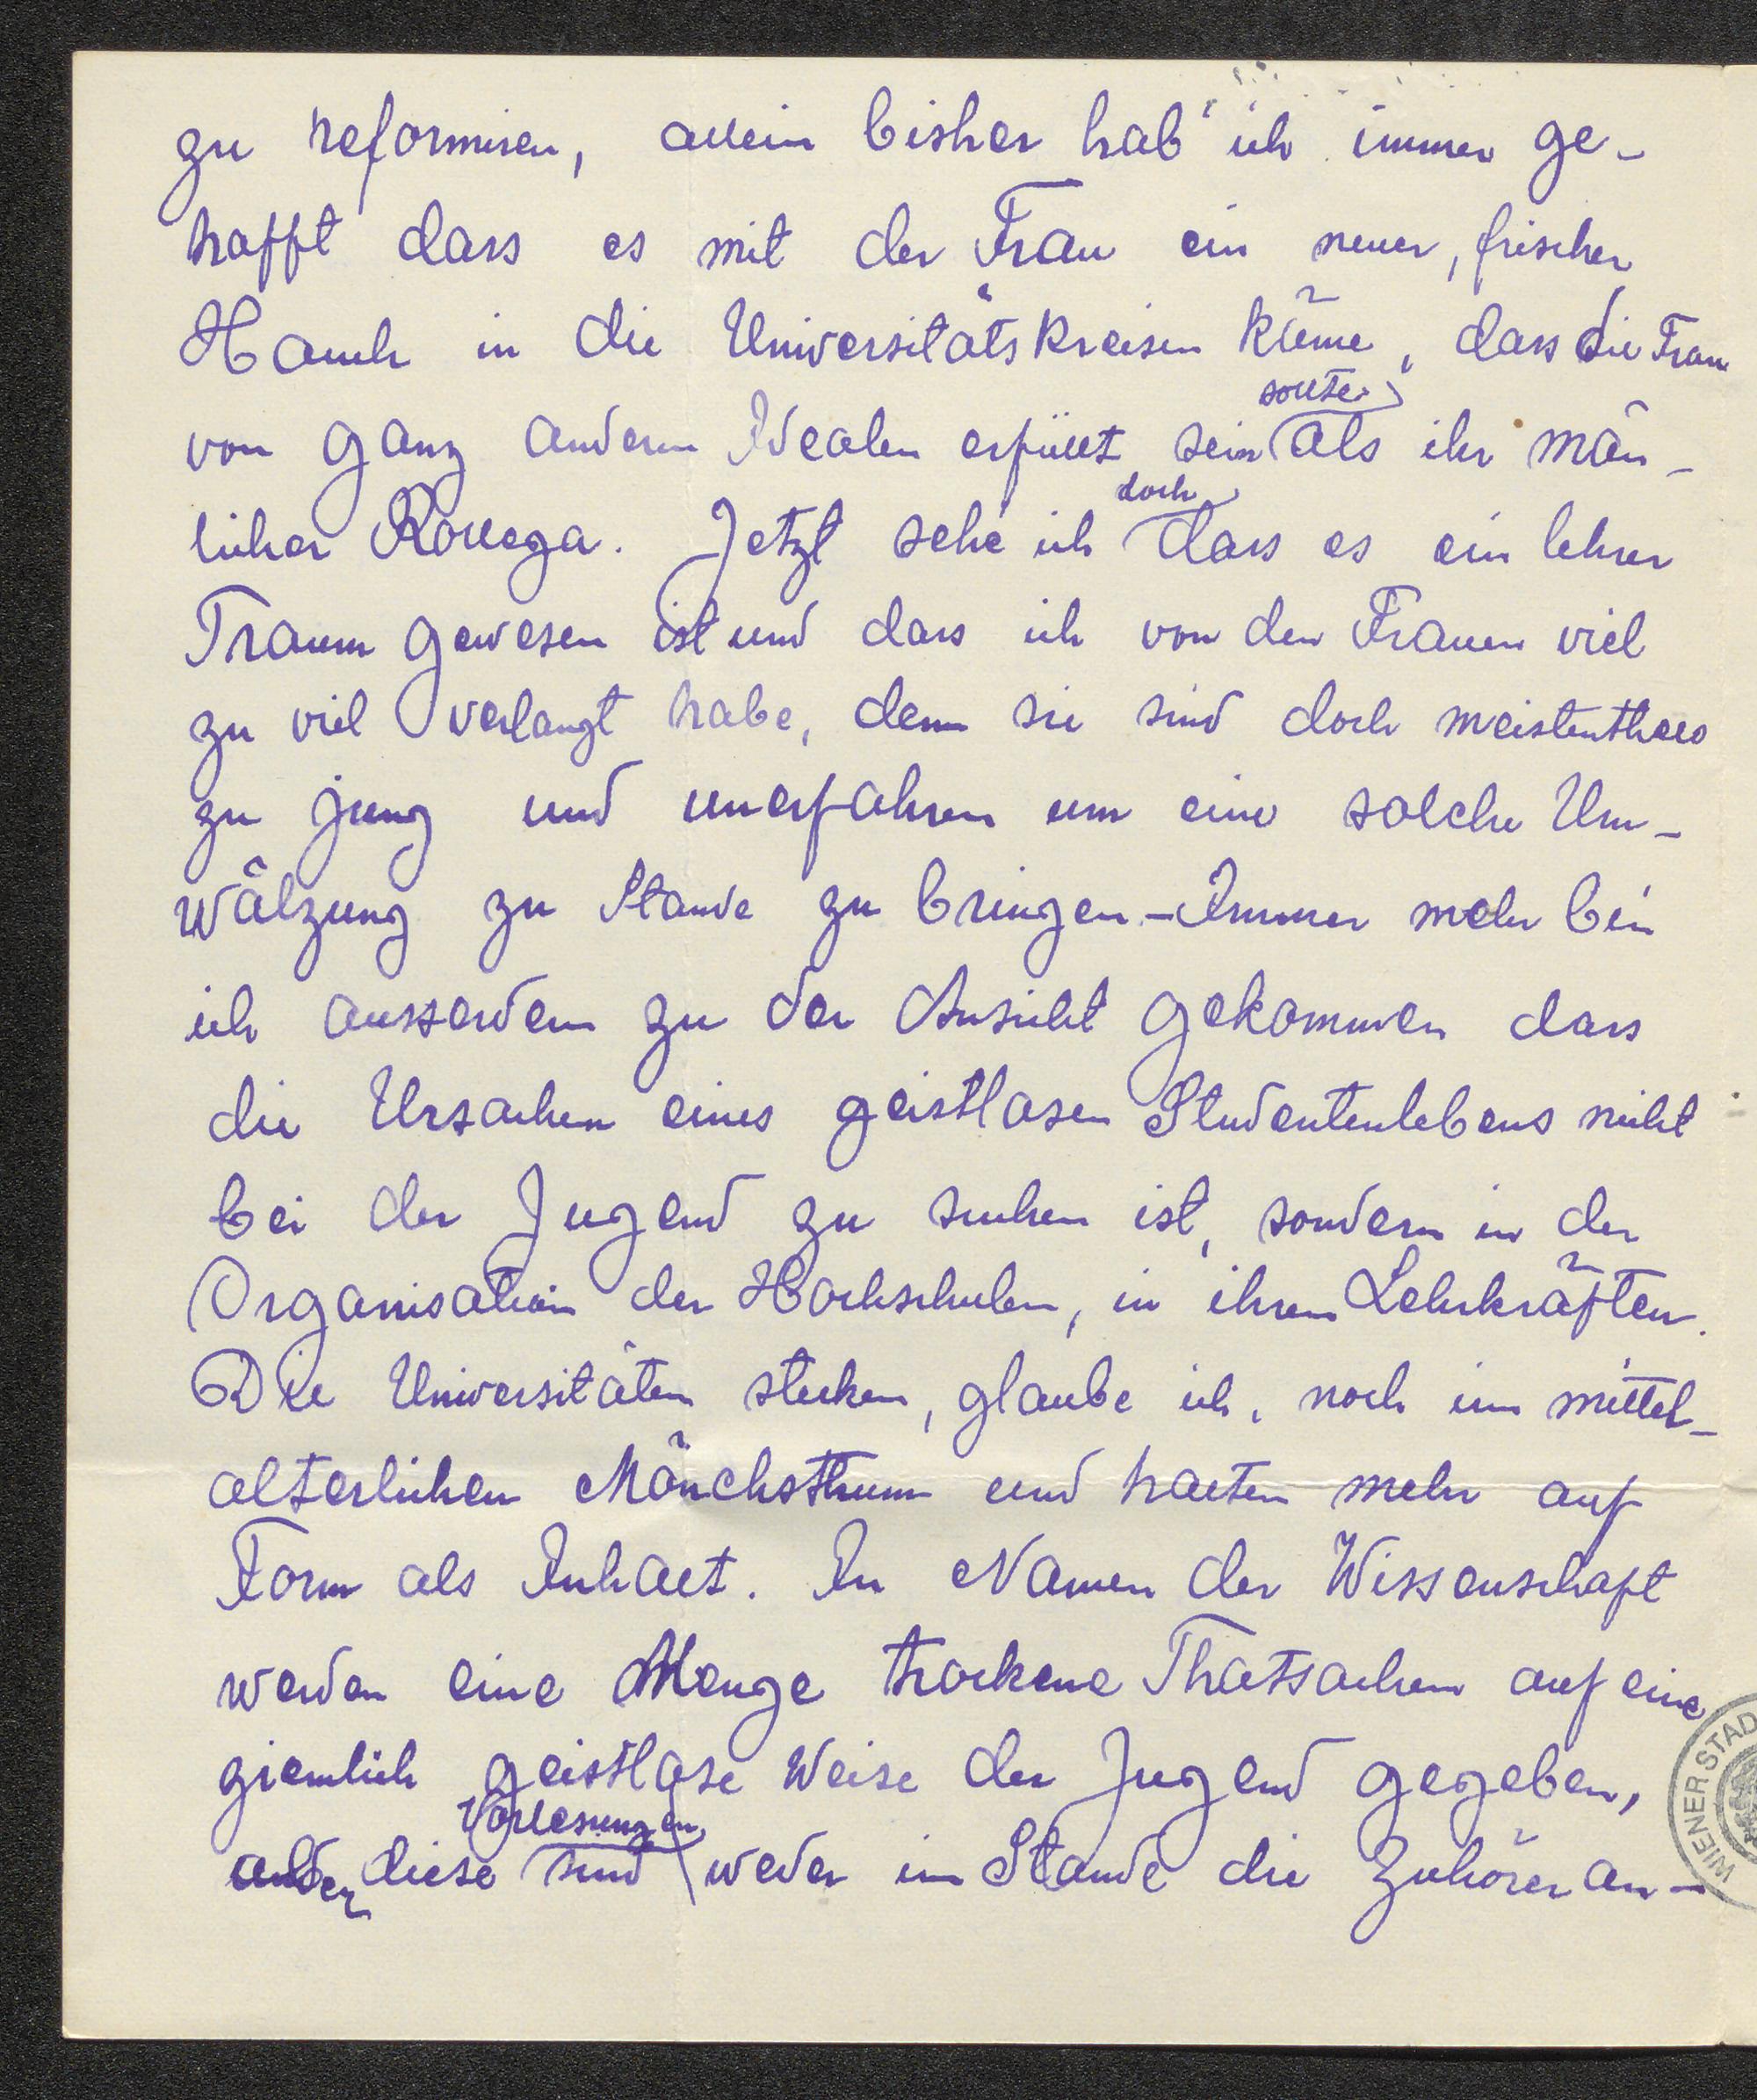 zu reformiren, allein bisher hab' ich immer ge-
hofft dass es mit der Frau ein neuer, frischer
Hauch in die Universitätskreisen käme, dass die Frau
sollte
von ganz andern Idealen erfüllt sein als ihr män-
licher Kollega. Jetzt sehe ich doch dass es ein lehrer
Traum gewesen ist und dass ich von den Frauen viel
zu viel verlangt habe, denn sie sind doch meistentheils
zu jung und unerfahren um eine solche Um-
wälzung zu Stande zu bringen - Immer mehr bin
ich ausserdem zu der Ansicht gekommen dass
die Ursachen eines geistlosen Studentenlebens nicht
bei der Jugend zu suchen ist, sondern in der
Organisation der Hochschulen, in ihren Lehrkräften.
Die Universitäten stecken, glaube ich, noch im mittel-
alterlichen Mönchsthum und halten mehr auf
Form als Inhalt. In Namen der Wissenschaft
werden eine Menge trockene Thatsachen auf eine
ziemlich geistlose Weise der Jugend gegeben,
Vorlesungen
diese sind weder im Stande die Zuhörer an-
WIENER STAD